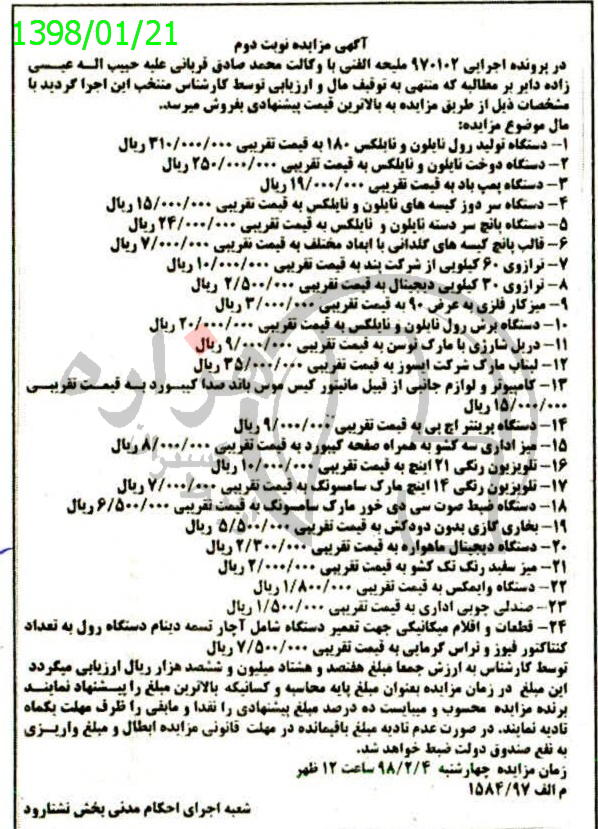 1398/01/21
آگهی مزایده نوبت دوم
در پرونده اجرایی ۹۷۰۱۰۲ ملیحه الفتی با وکالت محمد صادق قربانی علیه حبیب اله عیسی
زاده دایر بر مطالبه که منتهی به توقیف مال و ارزیابی توسط کارشناس منتخب این اجرا گردید با
مشخصات ذیل از طریق مزایده به بالاترین قیمت پیشنهادی بفروش میرسد.
مال موضوع مزایده:
۱- دستگاه تولید رول نایلون و نایلکس ۱۸۰ به قیمت تقریبی ۳۱۰/۰۰۰/۰۰۰ ریال
۲- دستگاه دوخت نایلون و نایلکس به قیمت تقریبی ۲۵۰/۰۰۰/۰۰۰ ریال
۳- دستگاه پمپ باد به قیمت تقریبی ۱۹/۰۰۰/۰۰۰ ریال
۴- دستگاه سر دوز کیسه های نایلون و نایلکس به قیمت تقریبی ۱۵/۰۰۰/۰۰۰ ریال
۵- دستگاه پانچ سر دسته نایلون و نایلکس به قیمت تقریبی ۲۴/۰۰۰/۰۰۰ ریال
۶- قالب پانچ کیسه های گلدانی با ابعاد مختلف به قیمت تقریبی ۷/۰۰۰/۰۰۰ ریال
۷- ترازوی ۶۰ کیلویی از شرکت پند به قیمت تقریبی ۱۰/۰۰۰/۰۰۰ ریال
۸- ترازوی ۳۰ کیلویی دیجیتال به قیمت تقریبی ۲/۵۰۰/۰۰۰ ریال
۹- میزکار فلزی به عرض ۹۰ به قیمت تقریبی ۳/۰۰۰/۰۰۰ ریال
۱۰- دستگاه برش رول نایلون و نایلکس به قیمت تقریبی ۲۰/۰۰۰/۰۰۰ ریال
۱۱- دریل شارژی با مارک توسن به قیمت تقریبی ۹/۰۰۰/۰۰۰ ریال
۱۲- لپتاب مارک شرکت ایسوز به قیمت تقریبی ۳۵/۰۰۰/۰۰۰ ریال
۱۳- کامپیوتر و لوازم جانبی از قبیل مانیتور کیس موس باند صدا کیبورد به قیمت تقریبی
۱۵/۰۰۰/۰۰۰ ریال
۱۴- دستگاه پرینتر اچ پی به قیمت تقریبی ۹/۰۰۰/۰۰۰ ریال
۱۵- میز اداری سه کشو به همراه صفحه کیبورد به قیمت تقریبی ۸/۰۰۰/۰۰۰ ریال
۱۶- تلویزیون رنگی ۲۱ اینچ به قیمت تقریبی ۱۰/۰۰۰/۰۰۰ ریال
۱۷- تلویزیون رنگی ۱۴ اینچ مارک سامسونگ به قیمت تقریبی ۷/۰۰۰/۰۰۰ ریال
۱۸- دستگاه ضبط صوت سی دی خور مارک سامسونگ به قیمت تقریبی ۶/۵۰۰/۰۰۰ ریال
۱۹- بخاری گازی بدون دودکش به قیمت تقریبی ۵/۵۰۰/۰۰۰ ریال
۲۰- دستگاه دیجیتال ماهواره به قیمت تقریبی ۲/۳۰۰/۰۰۰ ریال
۲۱- میز سفید رنگ تک کشو به قیمت تقریبی ۲/۰۰۰/۰۰۰ ریال
۲۲- دستگاه وایمکس به قیمت تقریبی ۱/۸۰۰/۰۰۰ ریال
۲۳- صندلی چوبی اداری به قیمت تقریبی ۱/۵۰۰/۰۰۰ ریال
۲۴- قطعات و اقلام میکانیکی جهت تعمیر دستگاه شامل آچار تسمه دینام دستگاه رول به تعداد
کنتاکتور فیوز و تراس گرمایی به قیمت تقریبی ۷/۵۰۰/۰۰۰ ریال
توسط کارشناس به ارزش جمعا مبلغ هفتصد و هشتاد میلیون و ششصد هزار ریال ارزیابی میگردد
این مبلغ در زمان مزایده بعنوان مبلغ پایه محاسبه و کسانیکه بالاترین مبلغ را پیشنهاد نمایند
برنده مزایده محسوب و میبایست ده درصد مبلغ پیشنهادی را نقدا و مابقی را ظرف مهلت یکماه
تادیه نمایند. در صورت عدم تادیه مبلغ باقیمانده در مهلت قانونی مزایده ابطال و مبلغ واریزی
به نفع صندوق دولت ضبط خواهد شد.
زمان مزایده چهارشنبه ۹۸/۲/۴ ساعت ۱۲ ظهر
م الف ۱۵۸۴/۹۷
شعبه اجرای احکام مدنی بخش نشتارود